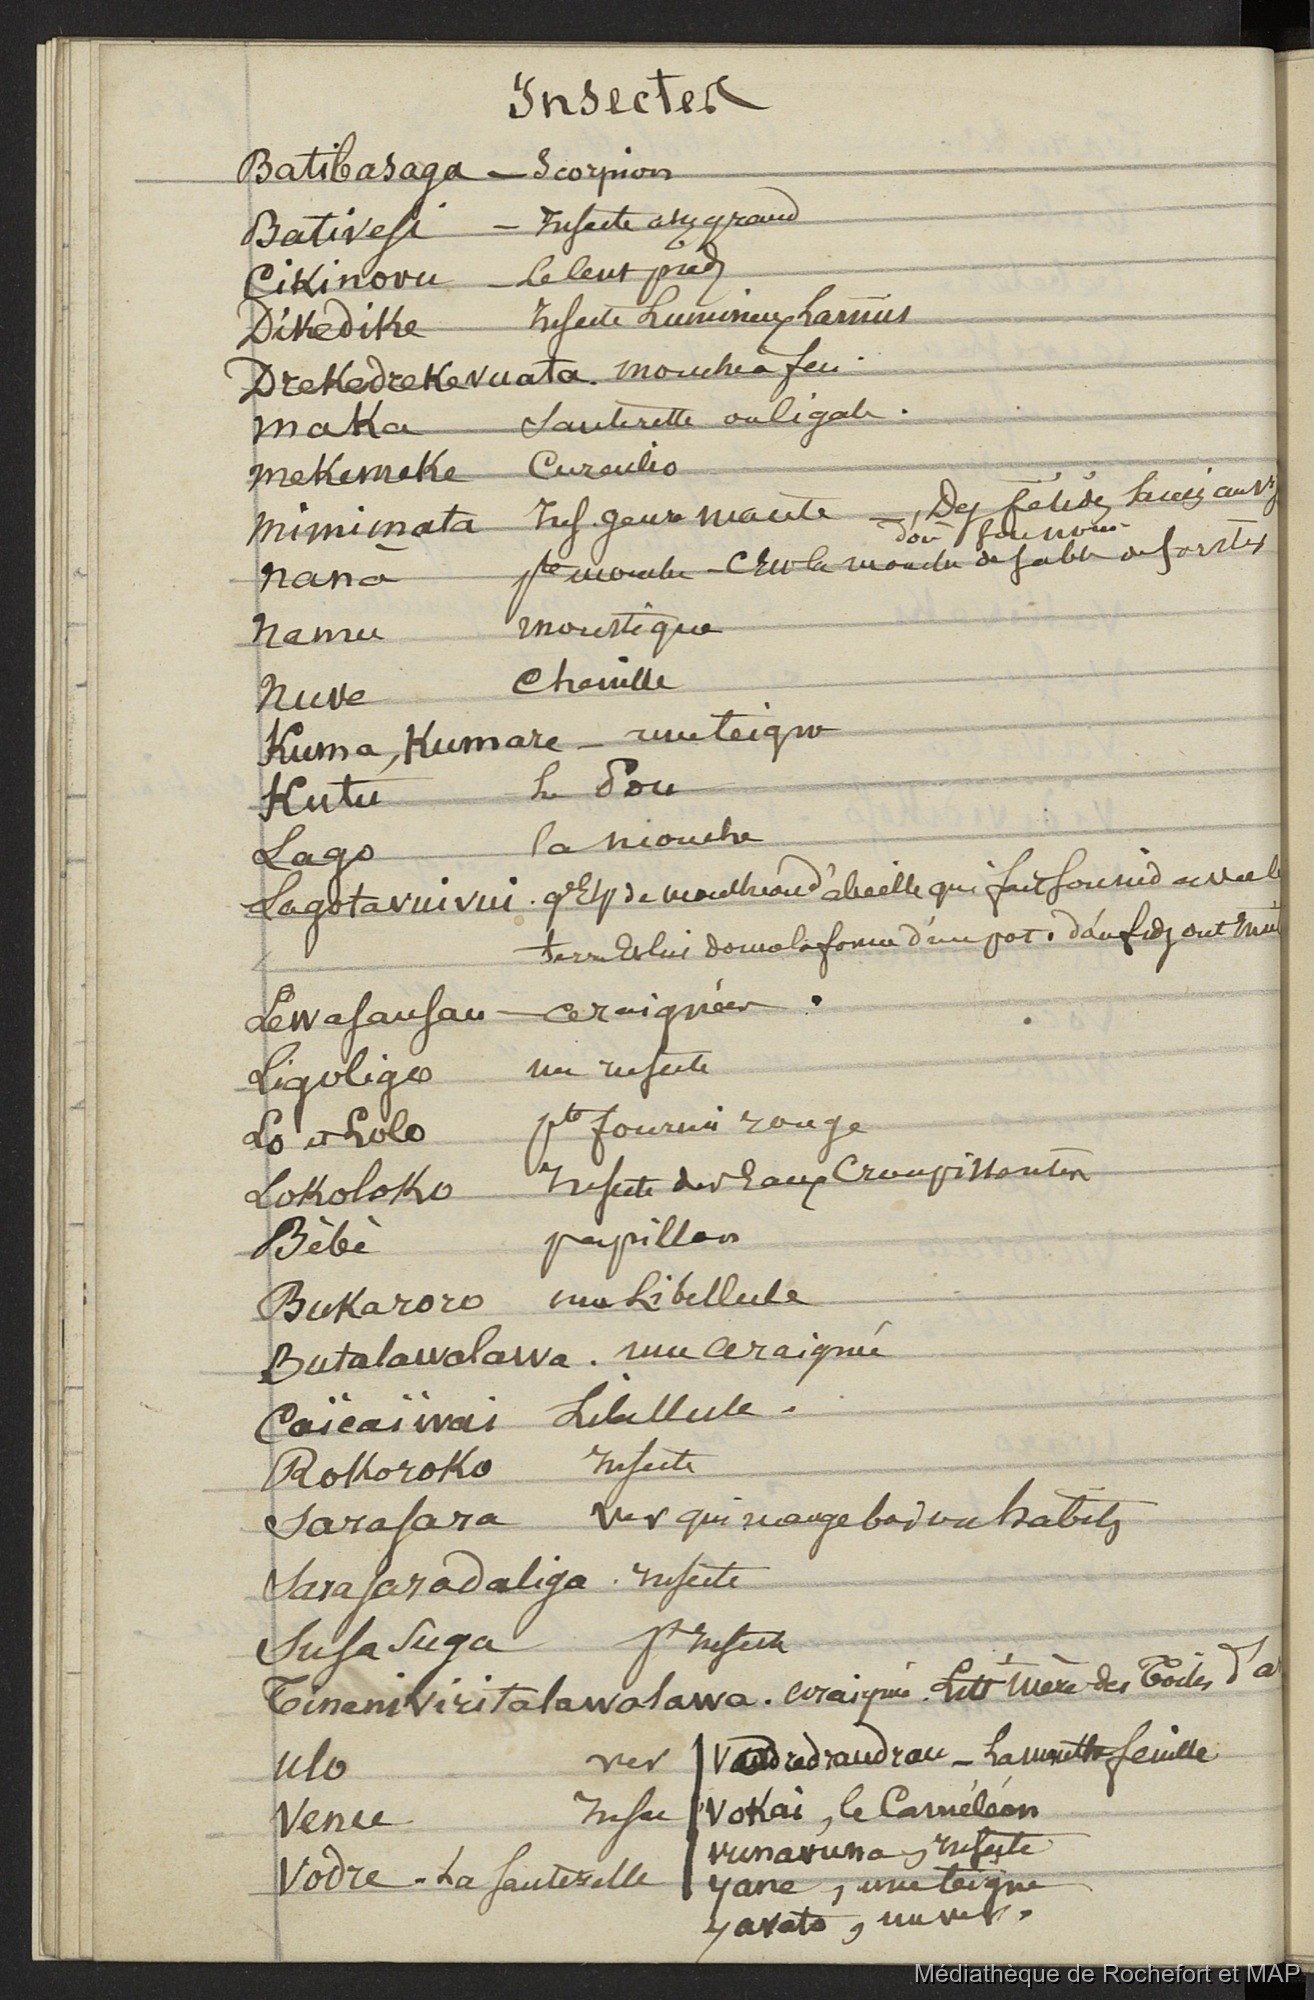 Insectes
Batibasaga — Scorpion
Bativesi — Insecte assez grand
Cikinovu — Le Cent pieds
Dikedike Insecte Lumineux
Drekedrekevuata. mouche à feu.
Maka Sauterelle ou Cigale.
Mekemeke Curculio
Mimimata Ins. genre mante — Des
d'où son nom
Nana pte mouche — C'est la mouche de sable
Namu moustique
Nuve Chenille
Kuma, Kumare — une teigne
Kutu Le Pou
Lago la mouche
Lagotavuivui. gde Esp de mouche ou d'abeille qui fait son nid avec la
terre et lui donne la forme d'un pot.
Lewasausau — araignée.
Ligoligo un insecte
Lo et Lolo pte fourmi rouge
Lokoloko Insecte des Eaux Croupissantes
Bèbè papillon
Bukaroro une Libellule
Butalawalawa. une araignée
Caïcaïwai Libellule.
Rokoroko Insecte
Sarasara Ver qui mange bois ou habits
Sarasaradaliga. Insecte
Susasuga pt Insecte
Tinaniviritalawalawa. araignée. Litt Mère des Toiles d'a
Ulo ver
Venu Insec
Vodre - La Sauterelle
Vaudredraudrau — La feuille
Vokai, le Caméléon
Vunavuna, Insecte
Yane, une teigne
Yavato, un ver.
Médiathèque de Rochefort et MAP